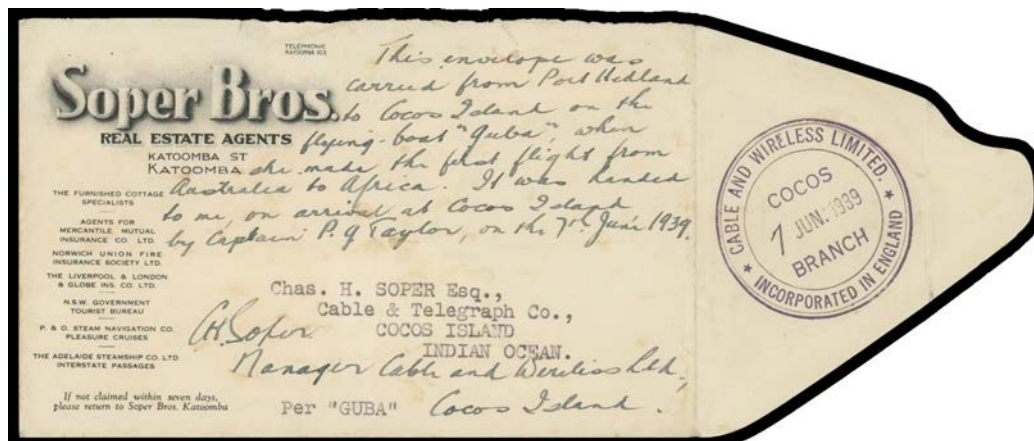 TELEPHONE
Soper Bros.
REAL ESTATE AGENTS
KATOOMBA ST
KATOOMBA
THE FURNISHED COTTAGE
SPECIALISTS
AGENTS FOR
MERCANTILE MUTUAL
INSURANCE CO. LTD.
NORWICH UNION FIRE
INSURANCE SOCIETY LTD.
THE LIVERPOOL & LONDON
& GLOBE INS. CO. LTD.
N.S.W. GOVERNMENT
TOURIST BUREAU
P. & O. STEAM NAVIGATION CO.
PLEASURE CRUISES
THE ADELAIDE STEAMSHIP CO. LTD.
INTERSTATE PASSAGES
If not claimed within seven days,
please return to Soper Bros. Katoomba
This envelope was
carried from Port Hedland
to Cocos Island on the
flying-boat "Guba", when
she made the first flight from
Australia to Africa. It was handed
to me, on arrival at Cocos Island
by Captain P. G Taylor, on the 7th June 1939.
Chas. H. SOPER Esq.,
Cable & Telegraph Co.,
COCOS ISLAND
INDIAN OCEAN.
CH. Soper.
Manager Cable and Wireless Ltd,
Cocos Island.
Per "GUBA"
CABLE AND WIRELESS LIMITED.
COCOS
7 JUN: 1939
BRANCH
INCORPORATED IN ENGLAND